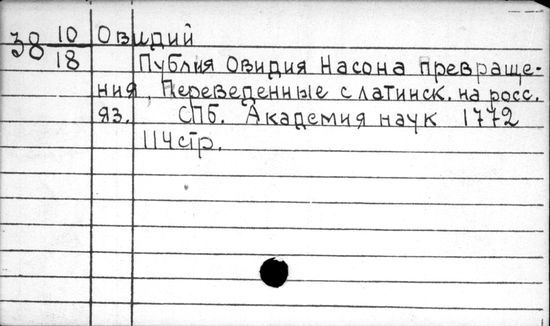 38 10/18 Овидий
Публия Овидия Насона превраще-
ния, Переведенные с латинск. на росс.
яз. СПб. Академия наук 1772
114стр.